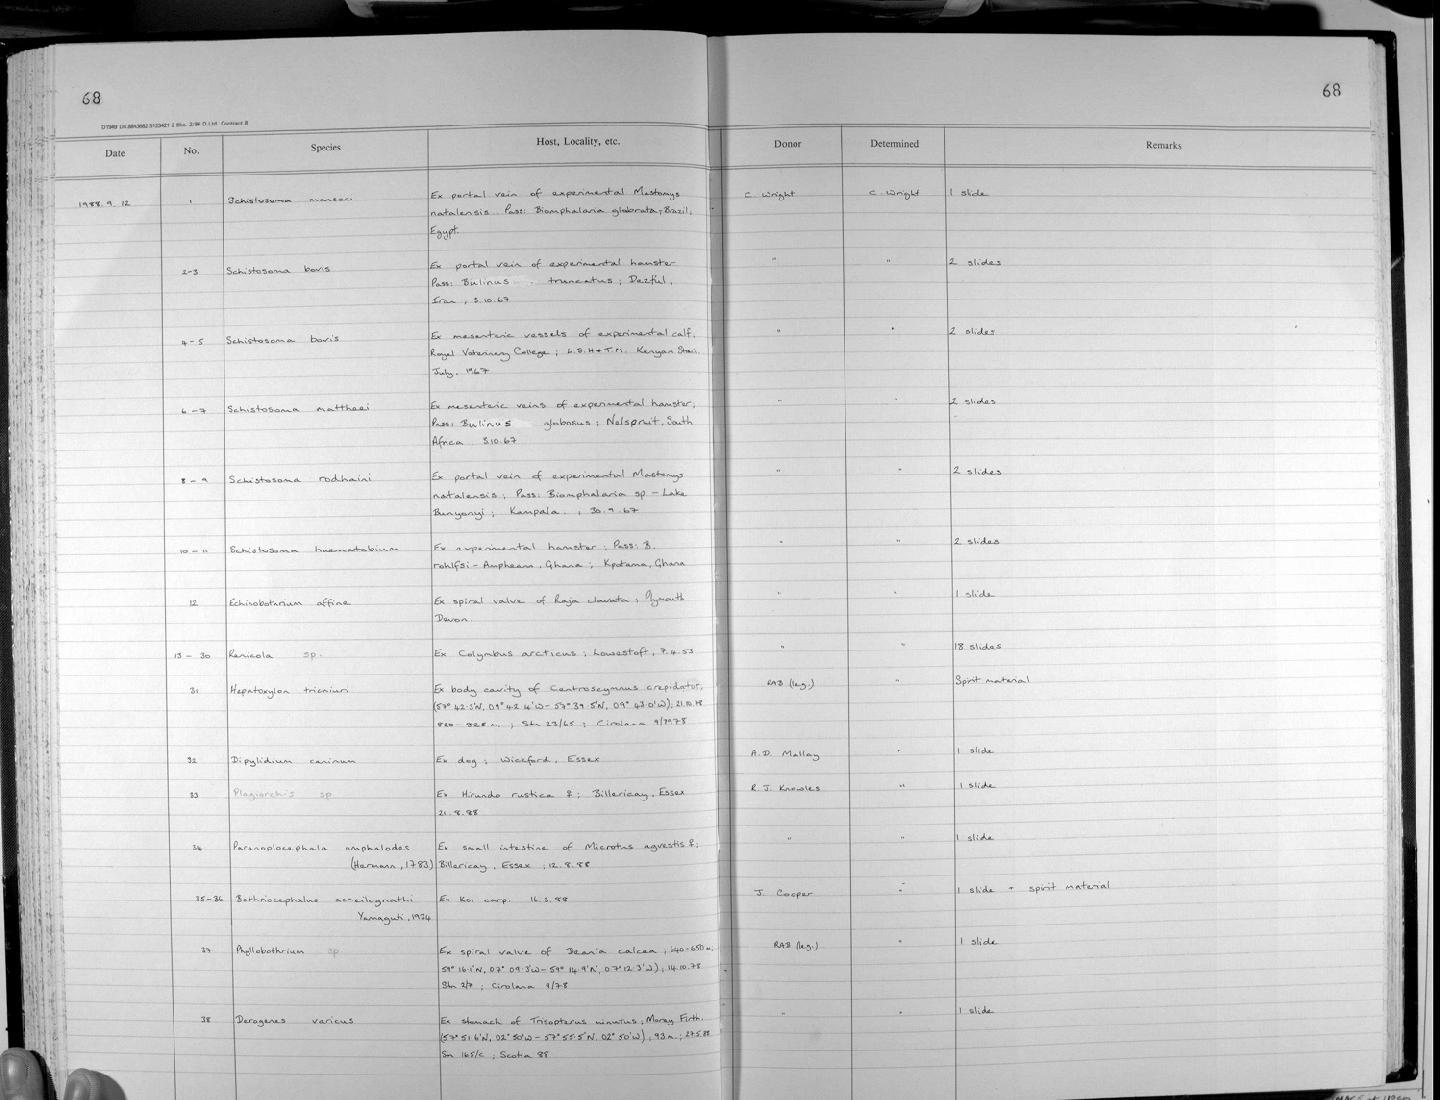 68
68
Date No. Species Host, Locality, etc. Donor Determined Remarks
1988.9.12 1 Schistosoma mansoni Ex portal vein of experimental Mastomys C. Wright C. Wright 1 slide
natalensis. Pass: Biomphalaria glabrata; Brazil;
Egypt.
2-3 Schistosoma bovis Ex portal vein of experimental hamster " " 2 slides
Pass: Bulinus truncatus; Dezful,
Iran, 5.10.67
4-5 Schistosoma bovis Ex mesenteric vessels of experimental calf, " " 2 slides
Royal Veterinary College; L.S.H+T.M. Kenyan Strain.
July. 1967
6-7 Schistosoma mattheei Ex mesenteric veins of experimental hamster; " " 2 slides
Pass: Bulinus globosus; Nelspruit, South
Africa 5.10.67
8-9 Schistosoma rodhaini Ex portal vein of experimental Mastomys " " 2 slides
natalensis; Pass: Biomphalaria sp - Lake
Bunyonyi; Kampala. ; 30.9.67
10-11 Schistosoma haematobium Ex experimental hamster; Pass: B. " " 2 slides
rohlfsi - Ampheam, Ghana; Kpotame, Ghana
12 Echinobothrium affine Ex spiral valve of Raja clavata; Plymouth " " 1 slide
Devon.
13-30 Renicola sp. Ex Colymbus arcticus; Lowestoft, 7.4.53 " " 18 slides
31 Hepatoxylon trichiuri Ex body cavity of Centroscymnus crepidater, RAB (leg.) " Spirit material
(57° 42.5'N, 09° 42.4'W - 57° 39.5'N, 09° 43.0'W); 21.10.78
; Stn 23/65; Cirolana 9/1978
32 Dipylidium caninum Ex dog; Wickford, Essex A.D. Mallay " 1 slide
33 Plagiorchis sp Ex Hirundo rustica ♀; Billericay, Essex R.J. Knowles " 1 slide
21.8.88
34 Paranoplocephala omphalodes Ex small intestine of Microtus agrestis ♀; " " 1 slide
(Hermann, 1783) Billericay, Essex; 12.8.88
35-36 Bothriocephalus acheilognathi Ex Koi carp. 16.3.88 J. Cooper " 1 slide + spirit material
Yamaguti, 1934
37 Phyllobothrium sp Ex spiral valve of Deania calcea; 640-650m; RAB (leg.) " 1 slide
59° 16.1'N, 07° 09.3'W - 59° 14.9'N, 07° 12.3'W); 14.10.78
Stn 2/7; Cirolana 9/78
38 Derogenes varicus Ex stomach of Trisopterus minutus; Moray Firth. " " 1 slide
(57° 51.6'N, 02° 50'W - 57° 55.5'N, 02° 50'W); 93m; 27.5.88
Stn 165/c; Scotia 88